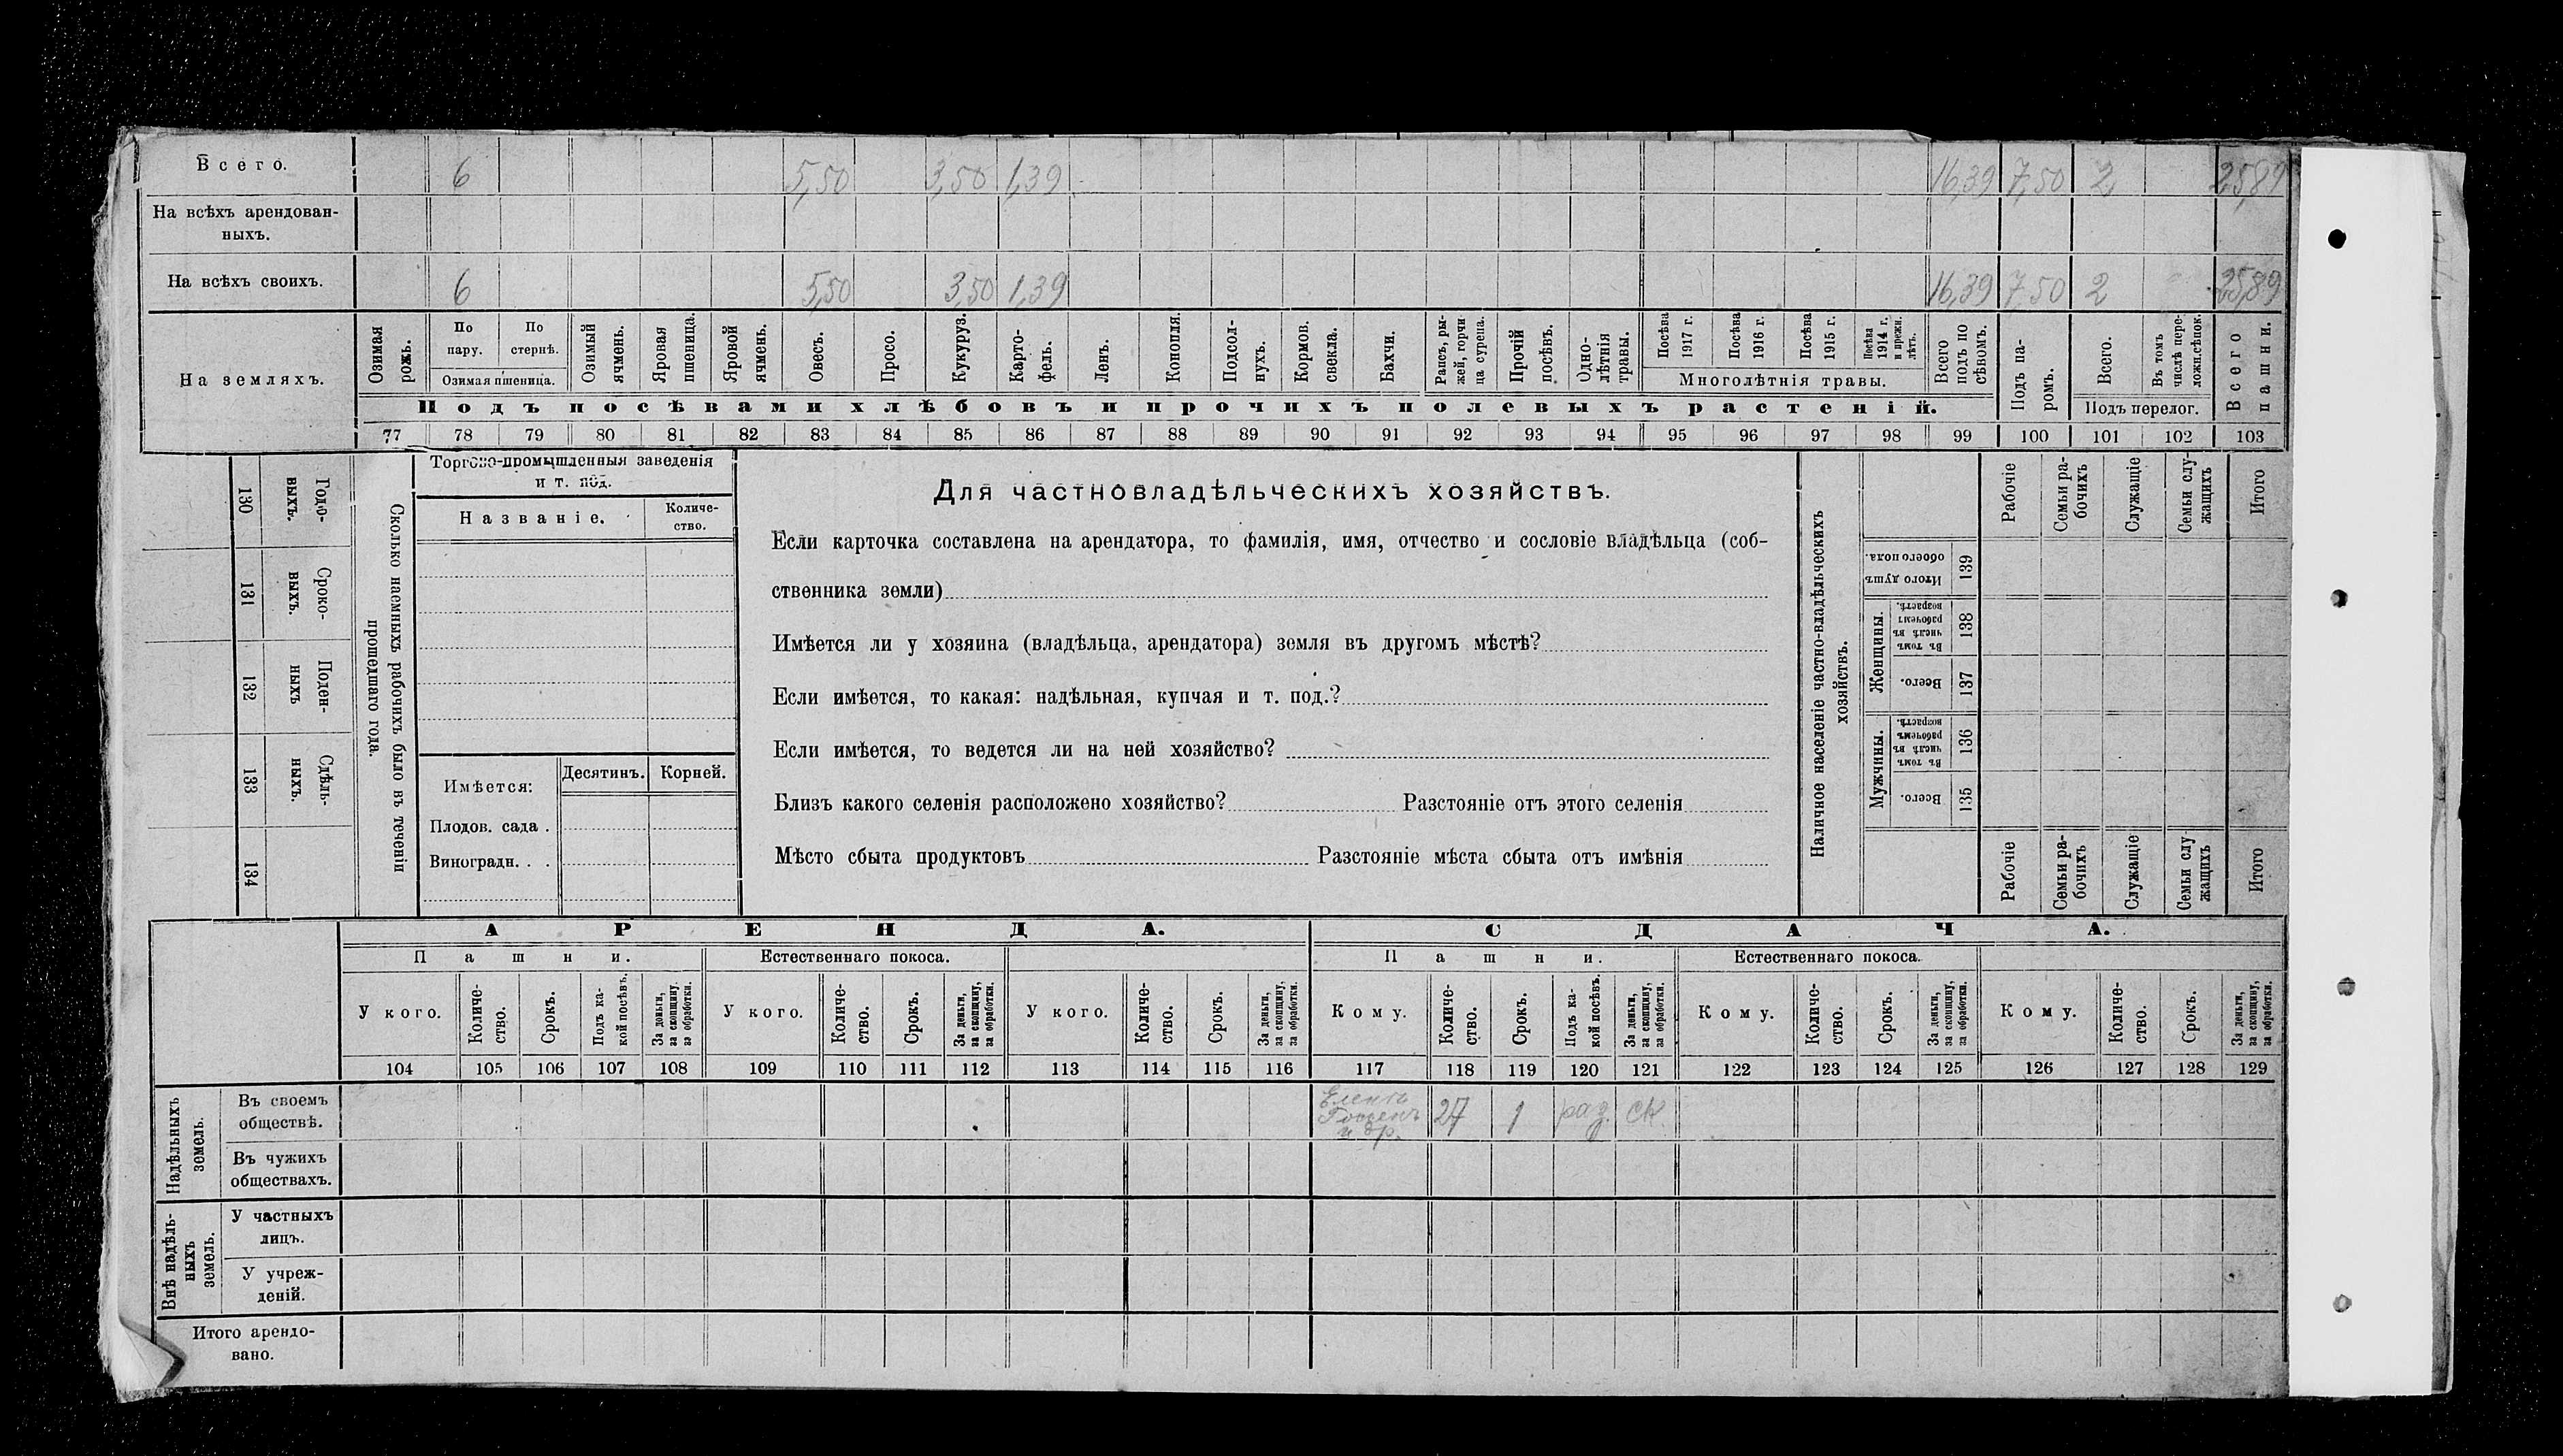 Всего. 6 5,50 3,50 1,39 16,39 7,50 2 25,89
На всѣхъ арендован-
ныхъ.
На всѣхъ своихъ. 6 5,50 3,50 1,39 16,39 7,50 2 25,89
На земляхъ.
Озимая
рожь.
По
пару.
По
стернѣ.
Озимая пшеница.
Озимый
ячмень.
Яровая
пшеница.
Яровой
ячмень.
Овесъ.
Просо.
Кукуруз.
Карто-
фель.
Ленъ.
Конопля.
Подсол-
нухъ.
Кормов.
свекла.
Бахчи.
Рапсъ, ры-
жей, горчи
ца сурепа.
Прочій
посѣвъ.
Одно-
лѣтнія
травы.
Посѣва
1917 г.
Посѣва
1916 г.
Посѣва
1915 г.
Посѣва
1914 г.
и прежн.
лѣтъ.
Многолѣтнія травы.
Всего
подъ по
сѣвомъ.
Подъ па-
ромъ.
Всего.
Въ томъ
числѣ пере-
ложн.сѣнок.
Подъ перелог.
Всего
пашни.
Подъ посѣвами хлѣбовъ и прочихъ полевыхъ растеній.
77 78 79 80 81 82 83 84 85 86 87 88 89 90 91 92 93 94 95 96 97 98 99 100 101 102 103
130 Годо-
выхъ.
131 Сроко-
выхъ.
132 Поден-
ныхъ
133 Сдѣль-
ныхъ.
134
Сколько наемныхъ рабочихъ было въ теченіи
прошедшаго года.
Торгово-промышленныя заведенія
и т. под.
Названіе.
Количе-
ство.
Имѣется:
Десятинъ.
Корней.
Плодов. сада .
Виноградн. . .
Для частновладѣльческихъ хозяйствъ.
Если карточка составлена на арендатора, то фамилія, имя, отчество и сословіе владѣльца (соб-
ственника земли)
Имѣется ли у хозяина (владѣльца, арендатора) земля въ другомъ мѣстѣ?
Если имѣется, то какая: надѣльная, купчая и т. под.?
Если имѣется, то ведется ли на ней хозяйство?
Близъ какого селенія расположено хозяйство? Разстояніе отъ этого селенія
Мѣсто сбыта продуктовъ Разстояніе мѣста сбыта отъ имѣнія
Наличное населеніе частно-владѣльческихъ
хозяйствъ.
Рабочіе
Семьи ра-
бочихъ
Служащіе
Семьи слу-
жащихъ
Итого
Итого душъ
обоего пола.
139
Женщины.
Въ томъ
числѣ въ
рабочемъ
возрастѣ.
138
Всего.
137
Мужчины.
Въ томъ
числѣ въ
рабочемъ
возрастѣ.
136
Всего.
135
Рабочіе
Семьи ра-
бочихъ
Служащіе
Семьи слу
жащихъ
Итого
АРЕНДА. СДАЧА.
Пашни. Естественнаго покоса. Пашни. Естественнаго покоса.
У кого.
Количе-
ство.
Срокъ.
Подъ ка-
кой посѣвъ.
За деньги,
за скопщину,
за обработки.
У кого.
Количе-
ство.
Срокъ.
За деньги,
за скопщину,
за обработки.
У кого.
Количе-
ство.
Срокъ.
За деньги,
за скопщину,
за обработки.
Кому.
Количе-
ство.
Срокъ.
Подъ ка-
кой посѣвъ.
За деньги,
за скопщину,
за обработки.
Кому.
Количе-
ство.
Срокъ.
За деньги,
за скопщину,
за обработки.
Кому.
Количе-
ство.
Срокъ.
За деньги,
за скопщину,
за обработки.
104 105 106 107 108 109 110 111 112 113 114 115 116 117 118 119 120 121 122 123 124 125 126 127 128 129
Надѣльныхъ
земель.
Въ своемъ
обществѣ.
и др. 27 1 раз. ск.
Въ чужихъ
обществахъ.
Внѣ надѣль-
ныхъ
земель.
У частныхъ
лицъ.
У учреж-
деній.
Итого арендо-
вано.